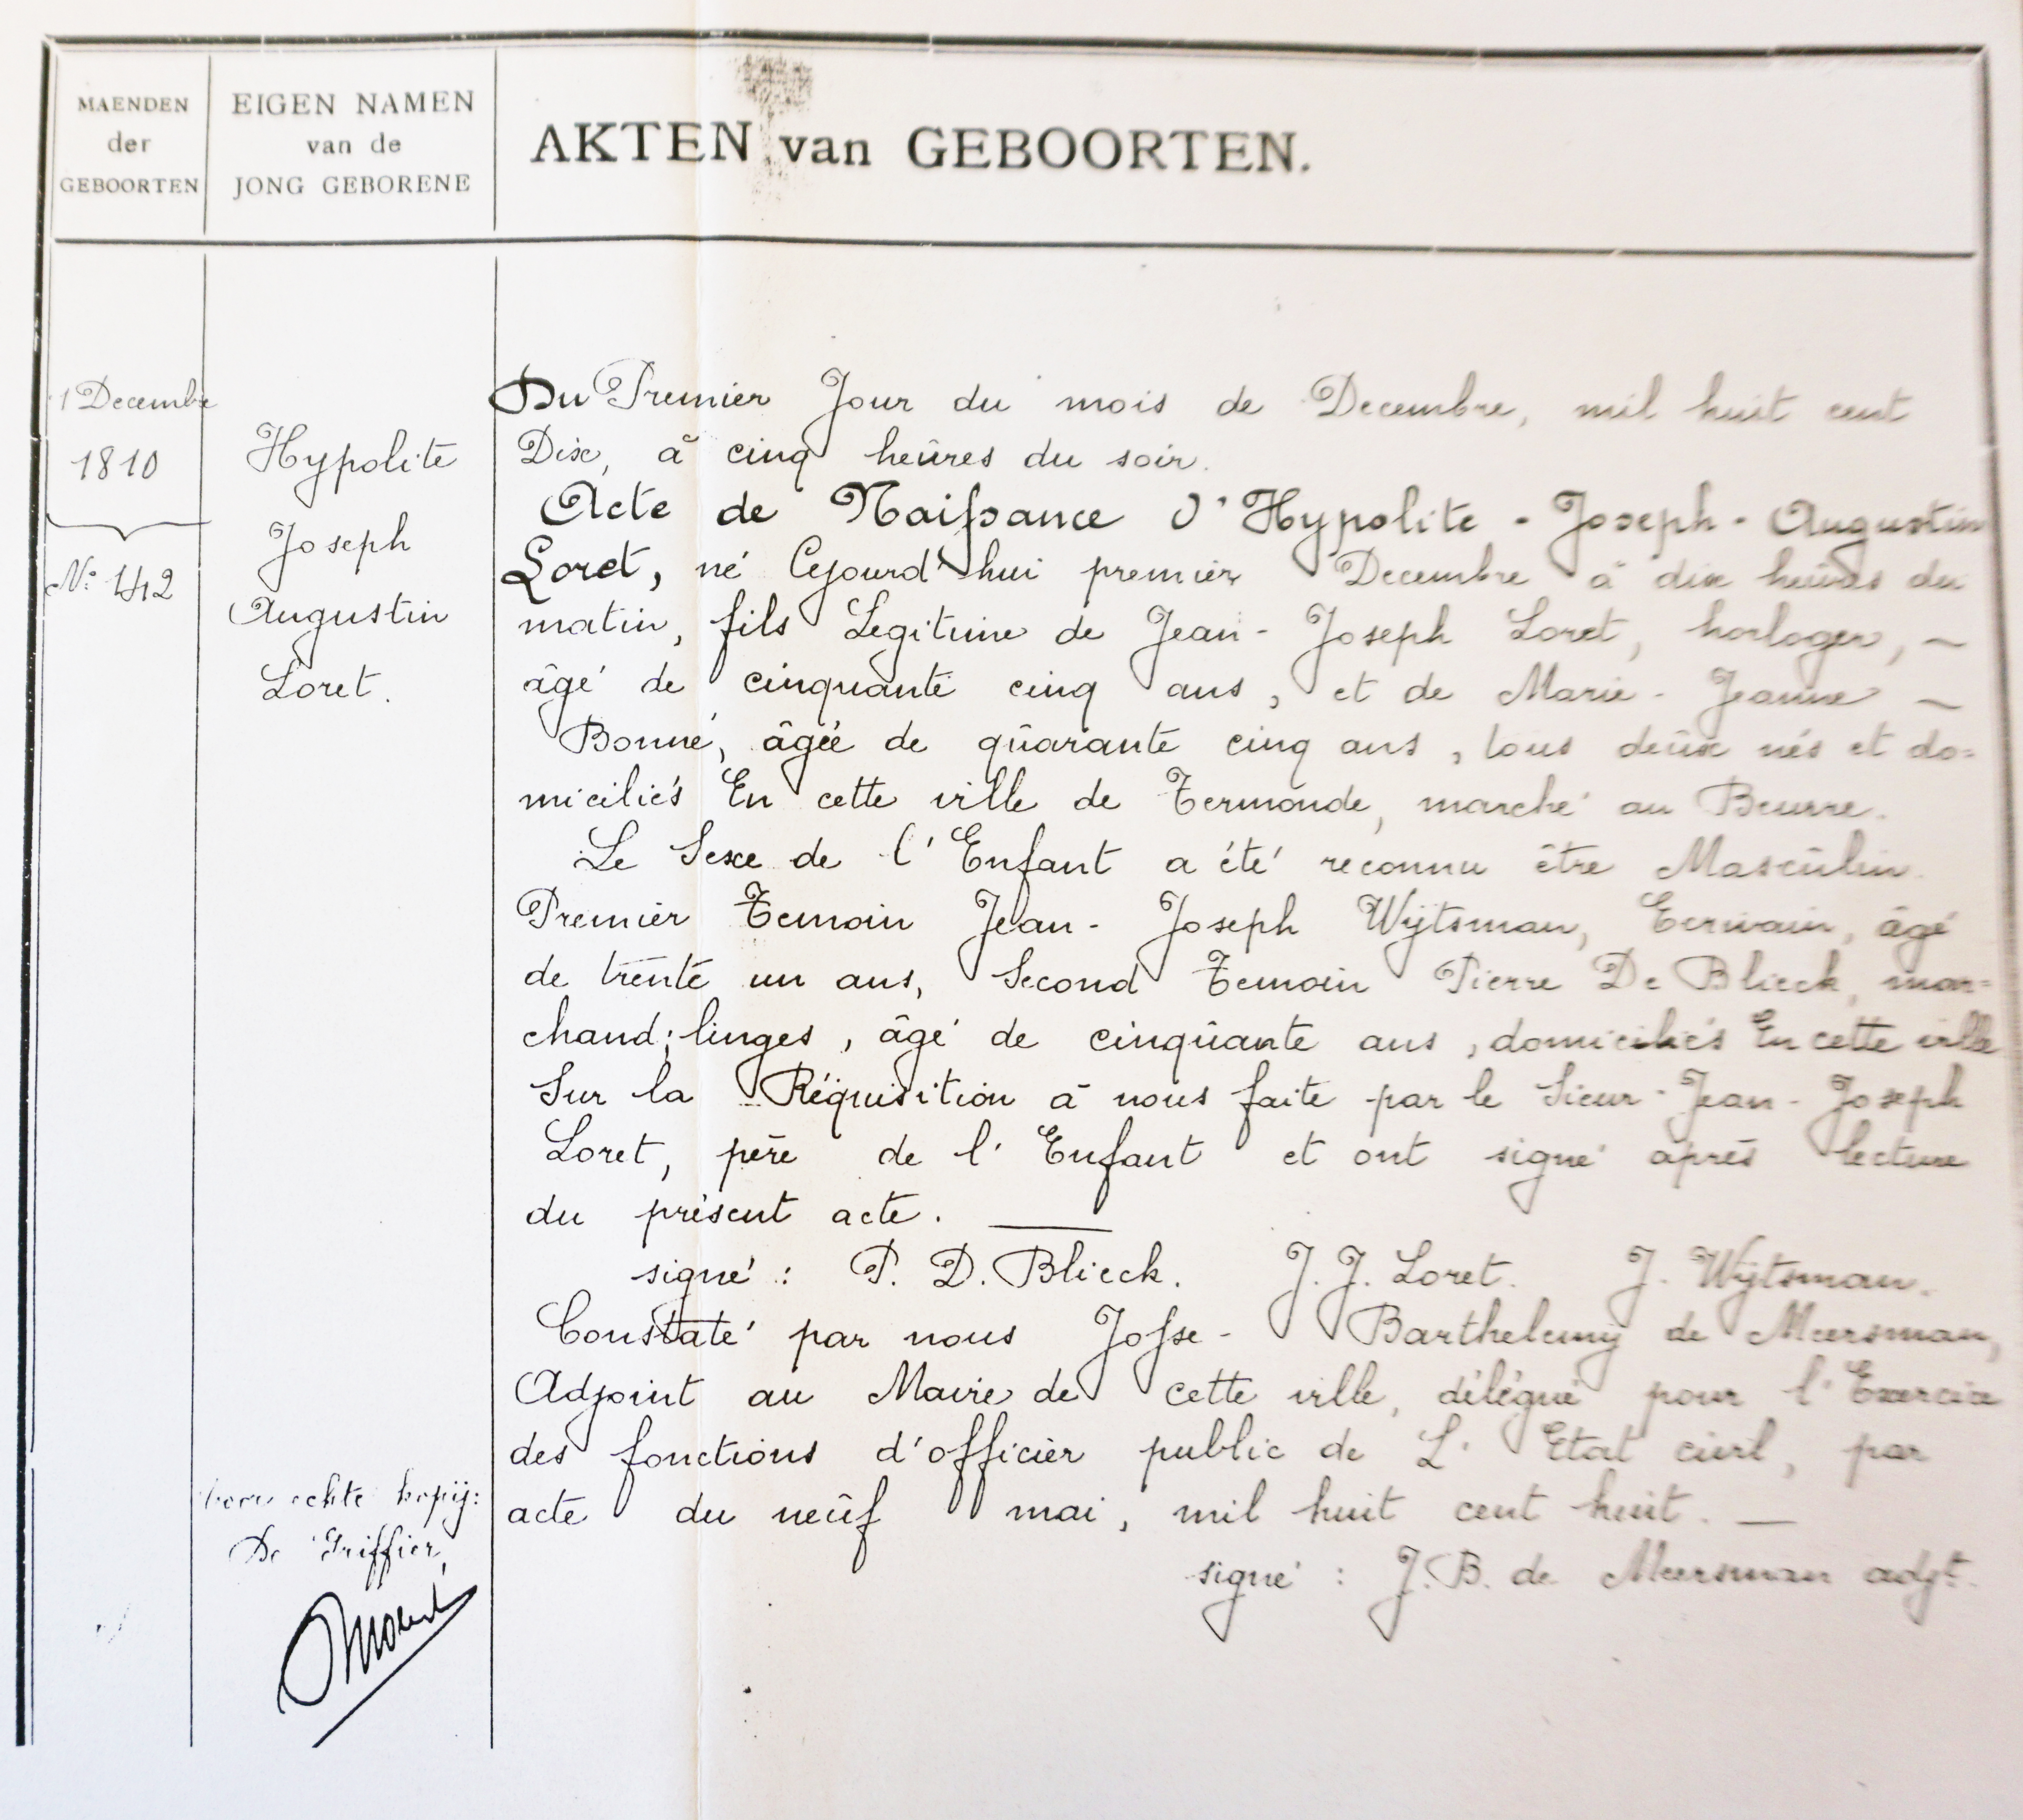 MAENDEN
der
GEBOORTEN
EIGEN NAMEN
van de
JONG GEBORENE
AKTEN van GEBOORTEN.
1 Decembre
1810
N° 442
Hypolite
Joseph
Augustin
Loret.
Du Premier Jour du mois de Decembre, mil huit cent
Dix, à cinq heûres du soir.
Acte de Naissance d'Hypolite - Joseph - Augustin
Loret, né Cejourd'hui premier Decembre à dix heûres du
matin, fils Legitime de Jean - Joseph Loret, horloger, ~
âgé de cinquante cinq ans, et de Marie - Jeanne ~
Bonné, âgée de qûarante cinq ans, tous deûx nés et do=
miciliés En cette ville de Termonde, marché au Beurre.
Le Sexe de l'Enfant a été reconnu être Mascûlin.
Premier Temoin Jean - Joseph Wÿtsman, Ecrivain, âgé
de trente un ans, Second Temoin Pierre De Blieck, mar=
chand; linges, âgé de cinqûante ans, domiciliés En cette ville
Sur la Réquisition à nous faite par le Sieur - Jean - Joseph
Loret, père de l'Enfant et ont signé après lecture
du présent acte. —
signé: P. D. Blieck. J. J. Loret. J. Wÿtsman.
Constaté par nous Josse - Barthelemÿ de Meersman,
Adjoint au Maire de cette ville, délégué pour l'Exercice
des fonctions d'officier public de L'Etat civil, par
acte du neûf mai, mil huit cent huit. —
signé: J. B. de Meersman adjt.
Voor echte kopij:
De Griffier,